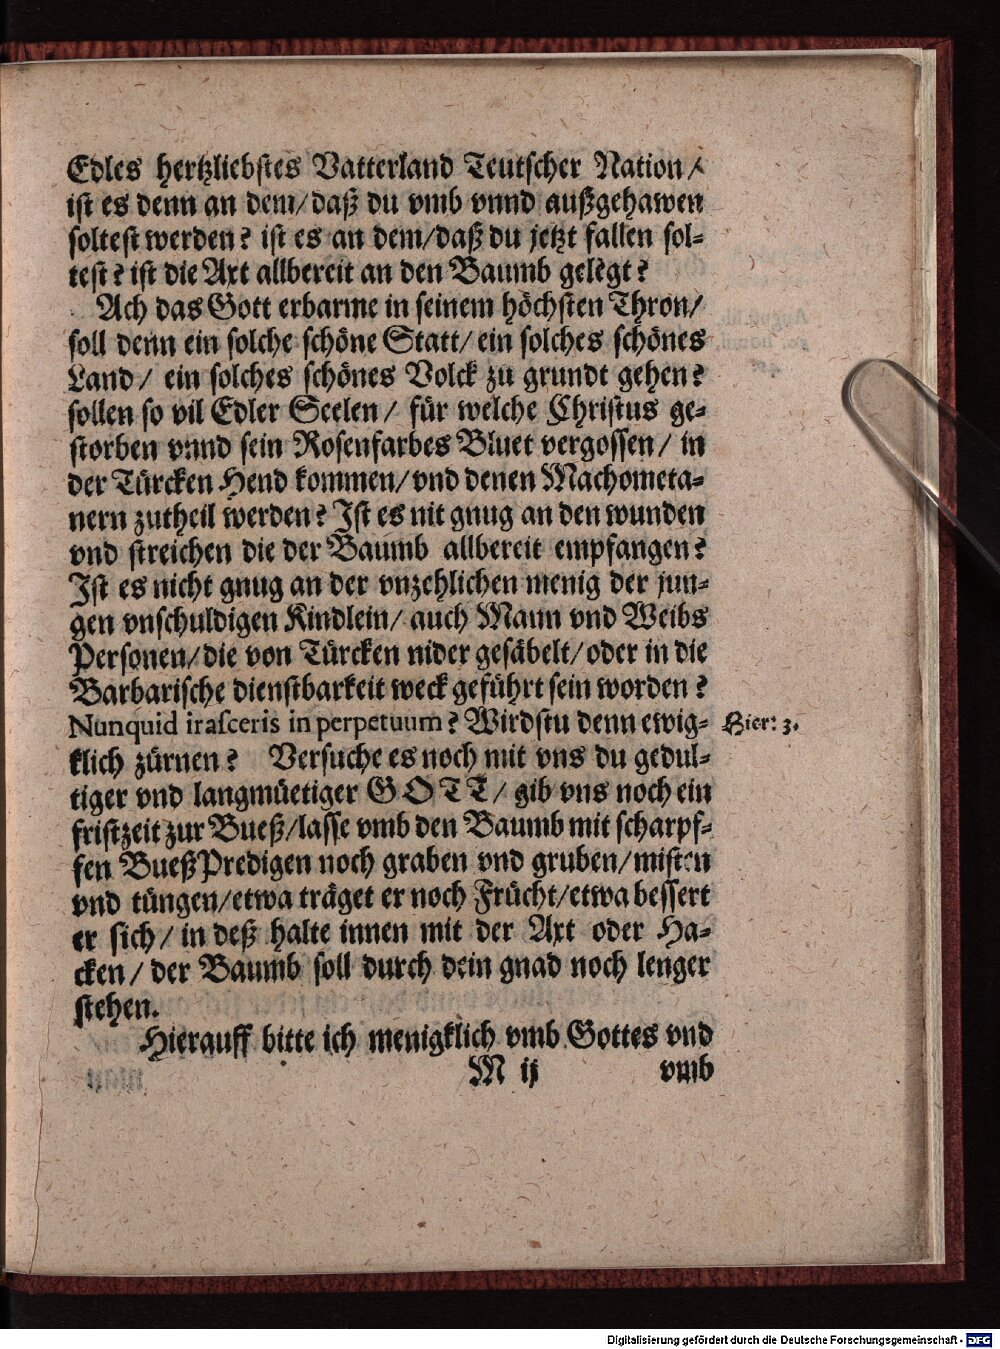 Edles hertzliebstes Vatterland Teutscher Nation/
ist es denn an dem/daß du vmb vnnd außgehawen
soltest werden? ist es an dem/daß du jetzt fallen sol-
test? ist die Axt allbereit an den Baumb gelegt?
Ach das Gott erbarme in seinem höchsten Thron/
soll denn ein solche schöne Statt/ ein solches schönes
Land/ ein solches schönes Volck zu grundt gehen?
sollen so vil Edler Seelen/ für welche Christus ge-
storben vnnd sein Rosenfarbes Bluet vergossen/ in
der Türcken Hend kommen/ vnd denen Machometa-
nern zutheil werden? Ist es nit gnug an den wunden
vnd streichen die der Baumb allbereit empfangen?
Ist es nicht gnug an der vnzehlichen menig der jun-
gen vnschuldigen Kindlein/ auch Mann vnd Weibs
Personen/ die von Türcken nider gesäbelt/ oder in die
Barbarische dienstbarkeit weck geführt sein worden?
Nunquid irasceris in perpetuum? Wirdstu denn ewig- Hier: 3.
klich zürnen? Versuche es noch mit vns du gedul-
tiger vnd langmüetiger GOTT/ gib vns noch ein
fristzeit zur Bueß/lasse vmb den Baumb mit scharpf-
fen BueßPredigen noch graben vnd gruben/ misten
vnd tüngen/etwa träget er noch Frücht/etwa bessert
er sich/ in deß halte innen mit der Axt oder Ha-
cken/ der Baumb soll durch dein gnad noch lenger
stehen.
Hierauff bitte ich menigklich vmb Gottes vnd
M ij vmb
Digitalisierung gefördert durch die Deutsche Forschungsgemeinschaft - DFG